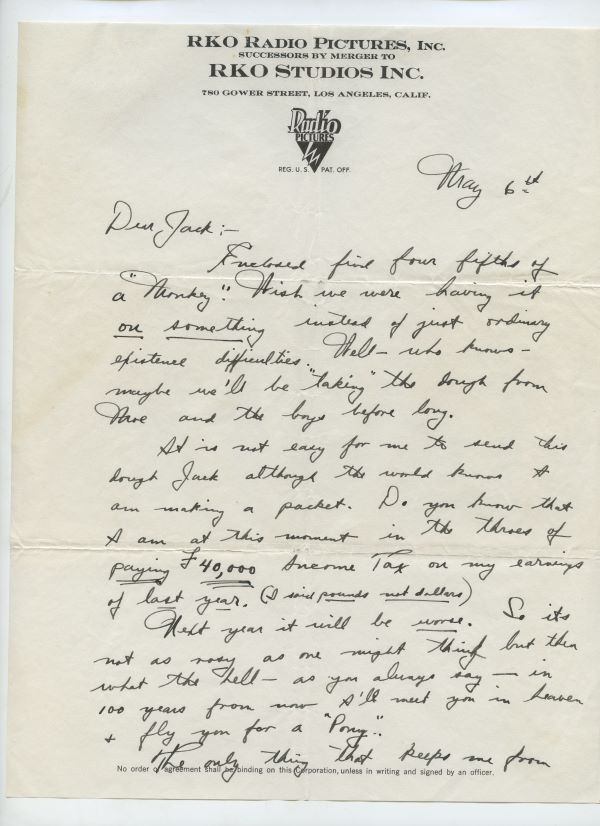 RKO RADIO PICTURES, INC.
SUCCESSORS BY MERGER TO
RKO STUDIOS INC.
780 GOWER STREET, LOS ANGELES, CALIF.
Radio
PICTURES
REG. U. S. PAT. OFF.
May 6th
Dear Jack:-
Enclosed find four fifths of
a "Monkey". Wish we were having it
on something instead of just ordinary
existence difficulties. Well - who knows -
maybe we'll be "taking" the dough from
Moe and the boys before long.
It is not easy for me to send this
dough Jack although the world knows I
am making a packet. Do you know that
I am at this moment in the throes of
paying £40,000 Income Tax on my earnings
of last year. (I said pounds not dollars)
Next year it will be worse. So its
not as rosy as one might think but then
what the hell - as you always say - in
100 years from now I'll meet you in heaven
+ fly you for a "Pony".
The only thing that keeps me from
No order or agreement shall be binding on this Corporation, unless in writing and signed by an officer.